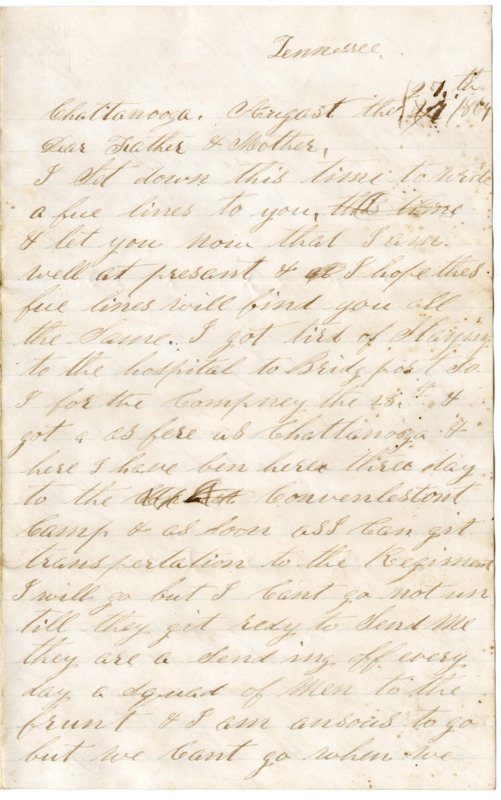 Tennessee.
Chattanooga. Augast the 27.th /1864
Dear Father & Mother,
I Set down this time to wride
a fue lines to you, this time
& let you now that I am
well at presant & I hope thes
fue lines will find you all
the Same. I got tird of Staying
to the hospital to Bridgport So
I for the Compney the 25. &
got a as fere as Chattanooga &
here I have ben here three day
to the Convenlestont
Camp & as Soon as I Can git
transpertation to the Regiment
I will go but I Cant go not un
till they git redy to Send Me
they are a Send ing off every
day a Squad of Men to the
frunt & I am ansous to go
but we Cant go when we